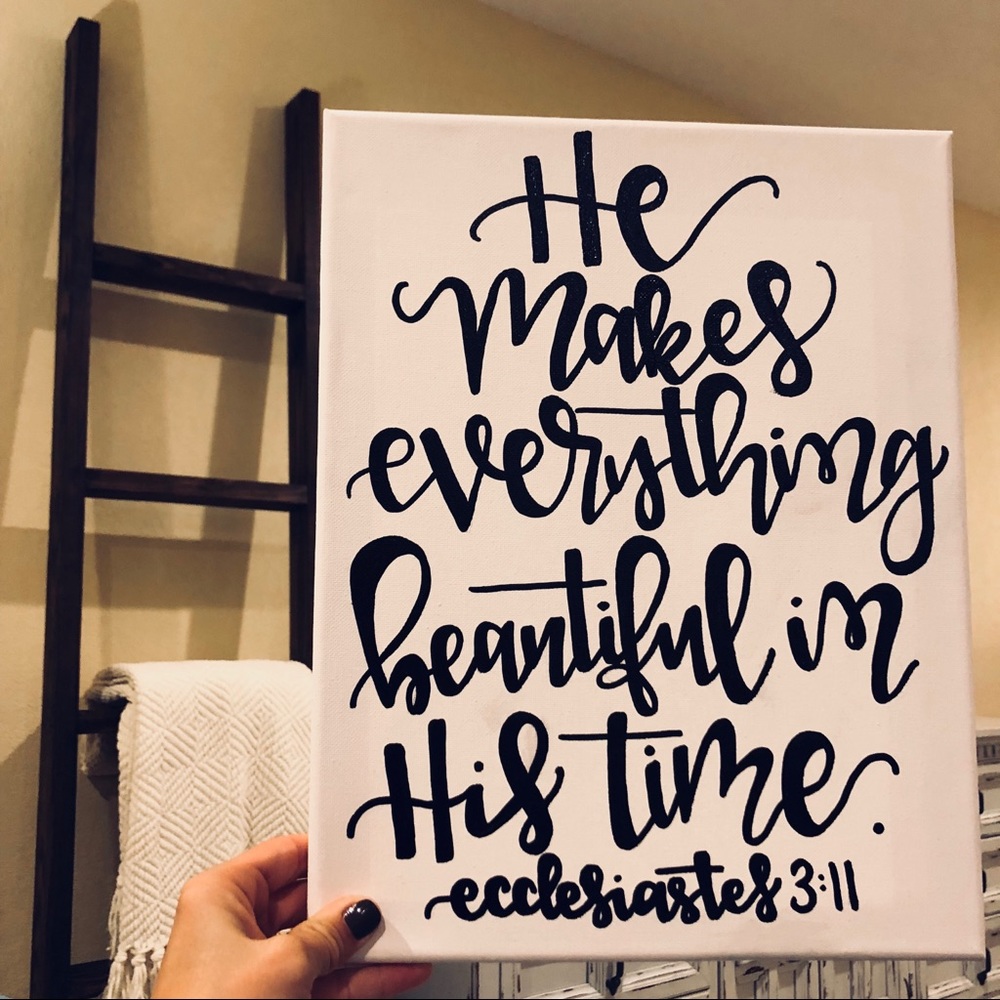 He
makes
everything
beautiful in
His time.
ecclesiastes 3:11